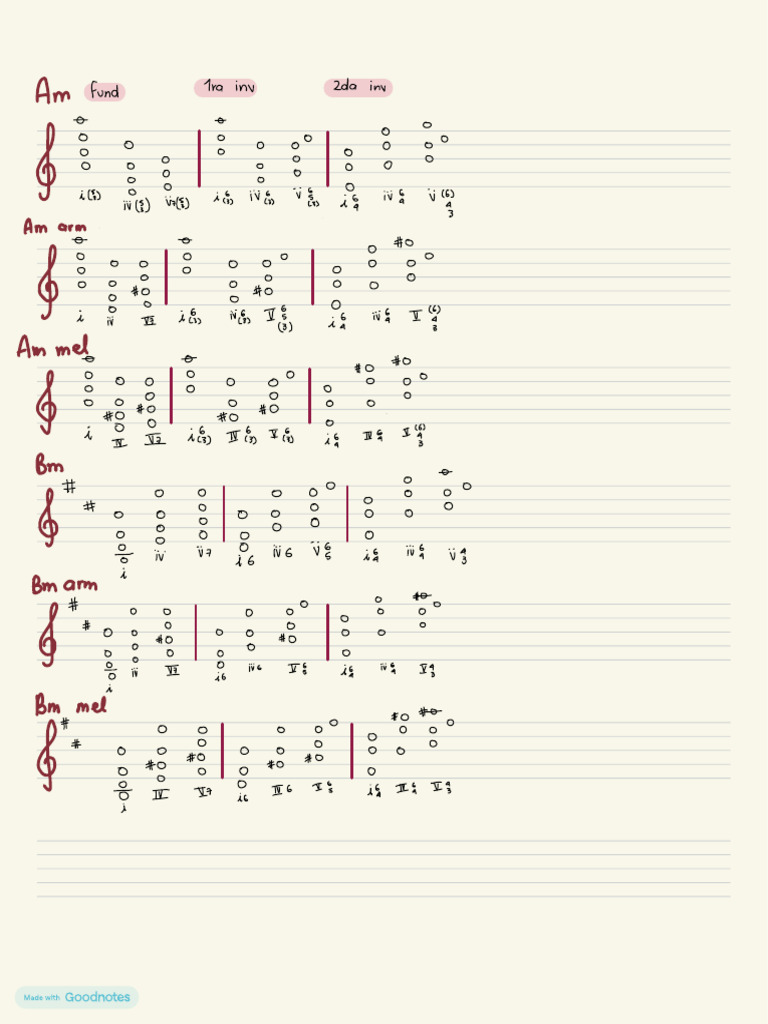 Am fund 1ra inv 2da inv
i(5/3) iv(5/3) v7(5/3) i6(3) iv6(3) v65(3) i64 iv64 v(6)43
Am arm
i iv V7 i6(3) iv6(3) V65(3) i64 iv64 V(6)43
Am mel
i IV V7 i6(3) IV6(3) V6(3) i64 IV64 V(6)43
Bm
i iv v7 i6 iv6 v65 i64 iv64 v43
Bm arm
i iv V7 i6 iv6 V65 i64 iv64 V43
Bm mel
i IV V7 i6 IV6 V65 i64 IV64 V43
Made with Goodnotes